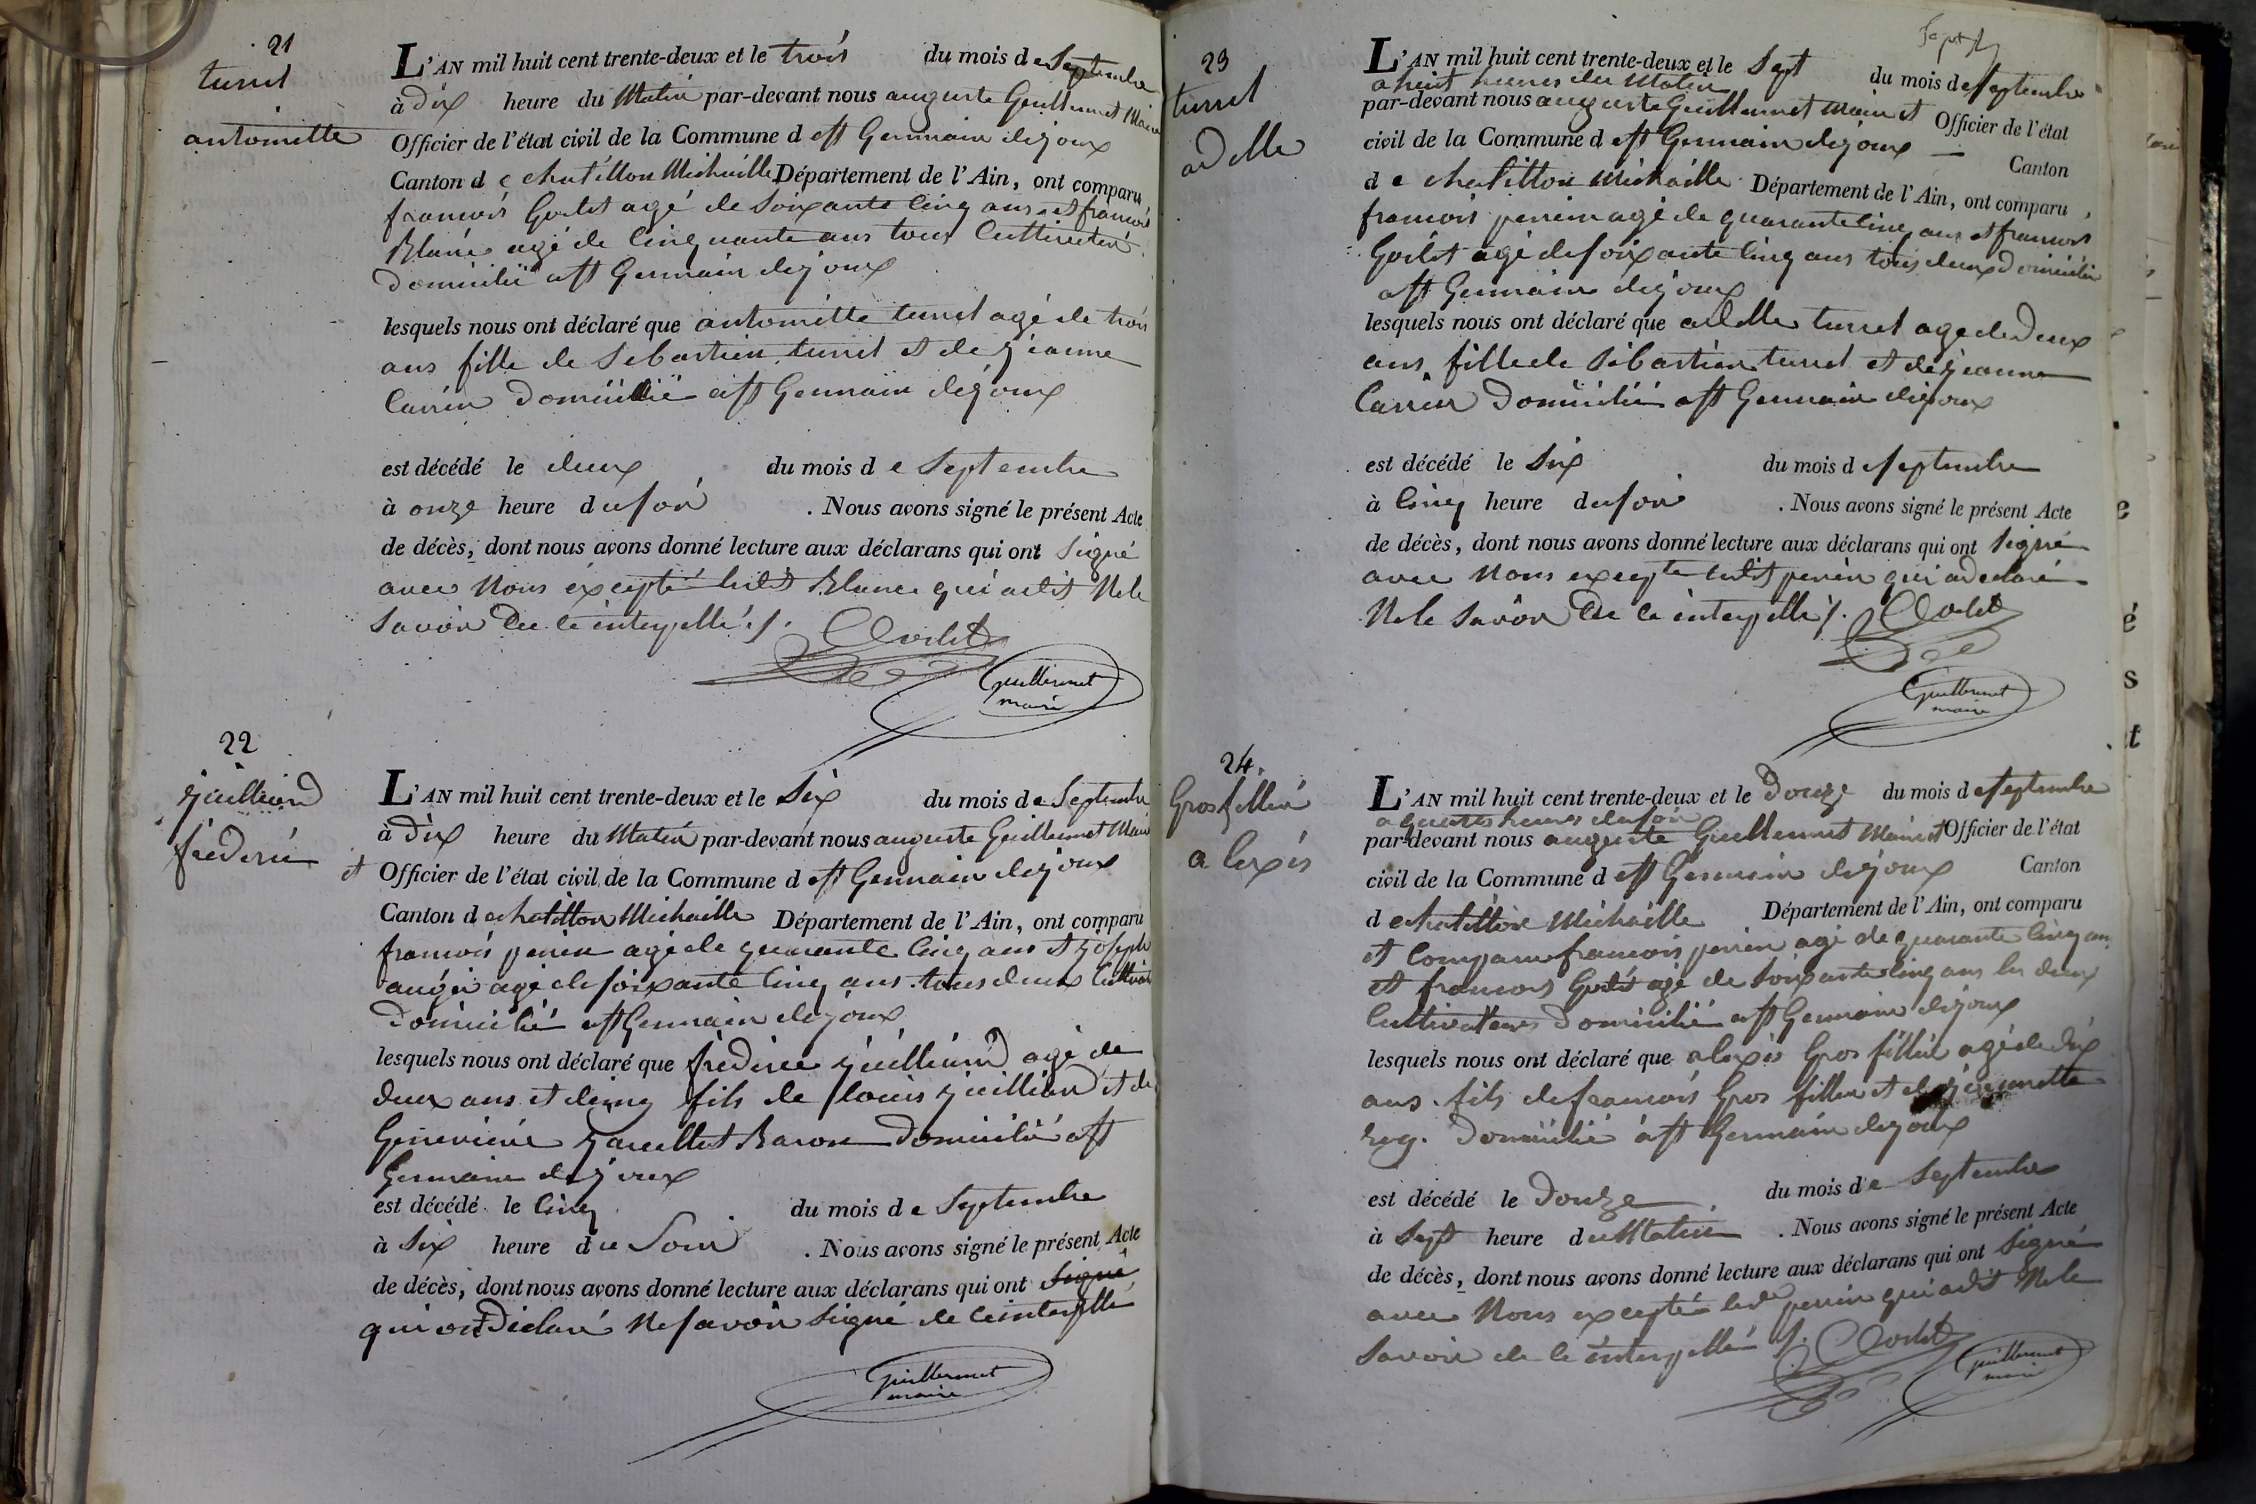 21
turrel
antoinette
L'AN mil huit cent trente-deux et le trois du mois de Septembre
à dix heure du Matin par-devant nous auguste Guillermet Maire
Officier de l'état civil de la Commune d est Germain dejoux
Canton de chatillon Michaille Département de l'Ain, ont comparu
francois Godet agé de Soixante Cinq ans et francois
Blanc agé de Cinquante ans tous Cultivateur
Domicilié a st Germain dejoux
lesquels nous ont déclaré que antoinette turrel agé de trois
ans fille de Sebastien turrel et de jeanne
Carrier Domicilié a st Germain dejoux
est décédé le deux du mois de Septembre
à onze heure du soir . Nous avons signé le présent Acte
de décès, dont nous avons donné lecture aux déclarans qui ont Signé
avec Nous excepté ledit Blanc qui a dit Ne le
Savoir De ce interpellé
Godet
Guillermet
maire
22
juilliard
frederic
L'AN mil huit cent trente-deux et le Six du mois de Septembre
à Dix heure du Matin par-devant nous auguste Guillermet Maire
et Officier de l'état civil de la Commune d e st Germain dejoux
Canton de chatillon Michaille Département de l'Ain, ont comparu
francois perrin agé de quarante Cinq ans et joseph
agé de soixante Cinq ans tous deux Cultivateur
Domicilié a st Germain dejoux
lesquels nous ont déclaré que frederic juilliard agé de
deux ans et demy fils de louis juilliard et de
Genevieve Baron Domicilié a st
Germain dejoux
est décédé le Cinq du mois de Septembre
à Six heure du Soir . Nous avons signé le présent Acte
de décès, dont nous avons donné lecture aux déclarans qui ont Signé
qui ont Déclaré Ne savoir Signé de ce interpellé
Guillermet
maire
23
turrel
adelle
L'AN mil huit cent trente-deux et le Sept du mois de Septembre
a huit heures du Matin
par-devant nous auguste Guillermet Maire et Officier de l'état
civil de la Commune d e st Germain dejoux Canton
de chatillon Michaille Département de l'Ain, ont comparu
francois perrin agé de quarante Cinq ans et francois
Godet agé de soixante Cinq ans tous deux Domicilié
a st Germain dejoux
lesquels nous ont déclaré que adelle turrel age de Deux
ans fille de Sébastien turrel et de jeanne
Carrier Domicilié a st Germain dejoux
est décédé le Six du mois de Septembre
à Cinq heure du soir . Nous avons signé le présent Acte
de décès, dont nous avons donné lecture aux déclarans qui ont Signé
avec Nous excepte ledit perrin qui a declaré
Ne le Savoir De ce interpellé
Godet
Guillermet
maire
24
Grosfillier
alexis
L'AN mil huit cent trente-deux et le Douze du mois de Septembre
a quatre heures du soir
par-devant nous auguste Guillermet Maire et Officier de l'état
civil de la Commune d e st Germain dejoux Canton
de chatillon Michaille Département de l'Ain, ont comparu
et Comparu francois perrin agé de quarante Cinq ans
et francois Godet agé de Soixante Cinq ans les deux
Cultivateurs Domicilié a st Germain dejoux
lesquels nous ont déclaré que alexis Gros fillier agé de dix
ans fils de francois Gros fillier et de jeannette
Rey. Domicilié a st Germain dejoux
est décédé le Douze du mois de Septembre
à Sept heure du Matin . Nous avons signé le présent Acte
de décès, dont nous avons donné lecture aux déclarans qui ont Signé
avec Nous excepté led perrin qui a dit Ne le
Savoir de ce interpellé
Godet
Guillermet
maire